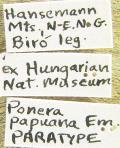 Hansemann
Mts. N-E. N. G.
Biró leg.
ex Hungarian
Nat. Museum
Ponera
Papuana Em.
PARATYPE